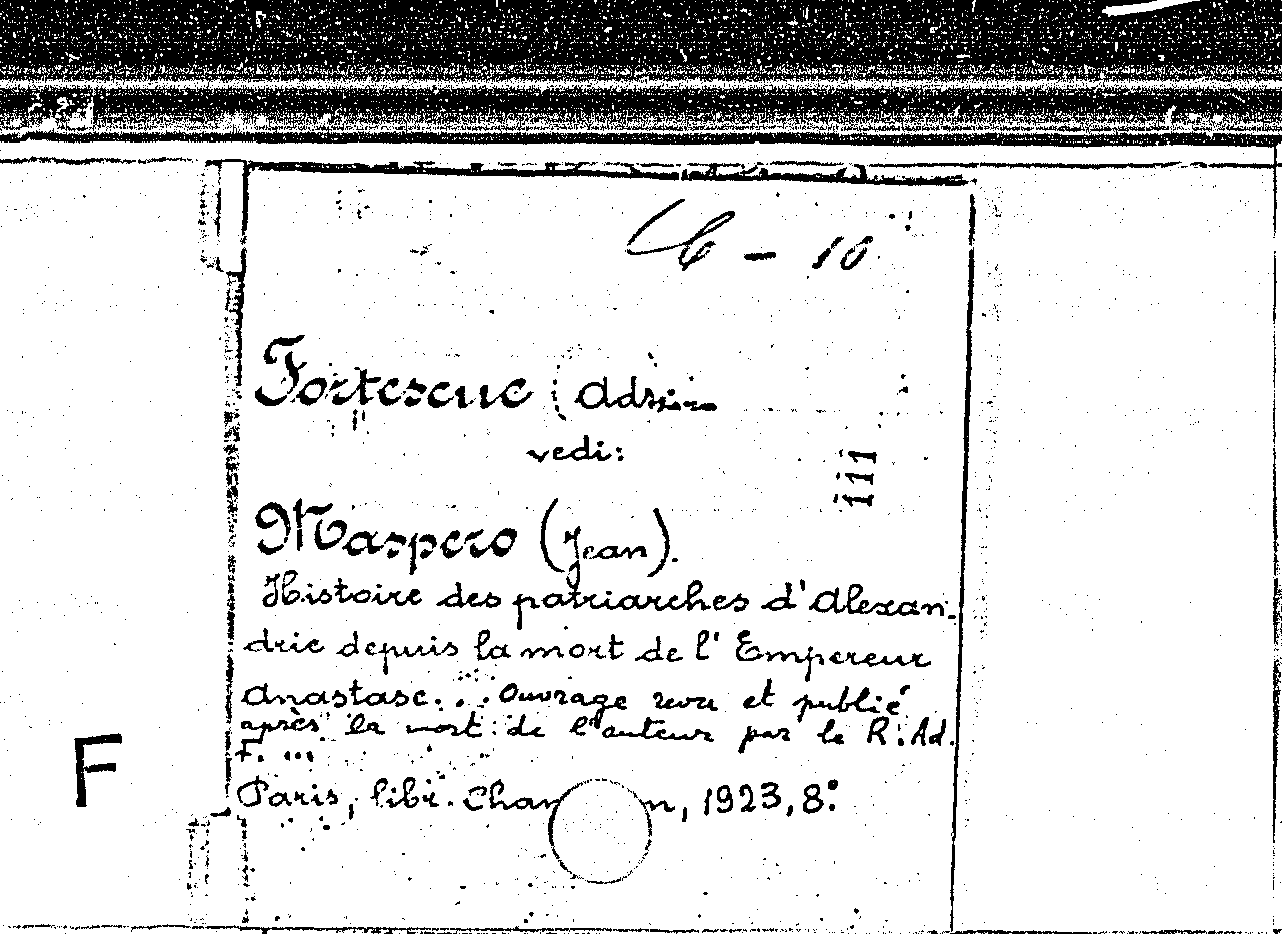 - 10
Fortescue (Adrian
vedi:
iii
Maspero (Jean).
Histoire des patriarches d'Alexan-
drie depuis la mort de l'Empereur
Anastase... Ouvrage revu et publié
après la mort de l'auteur par le R. Ad.
F. ...
F
Paris, libr. Cham n, 1923, 8°.